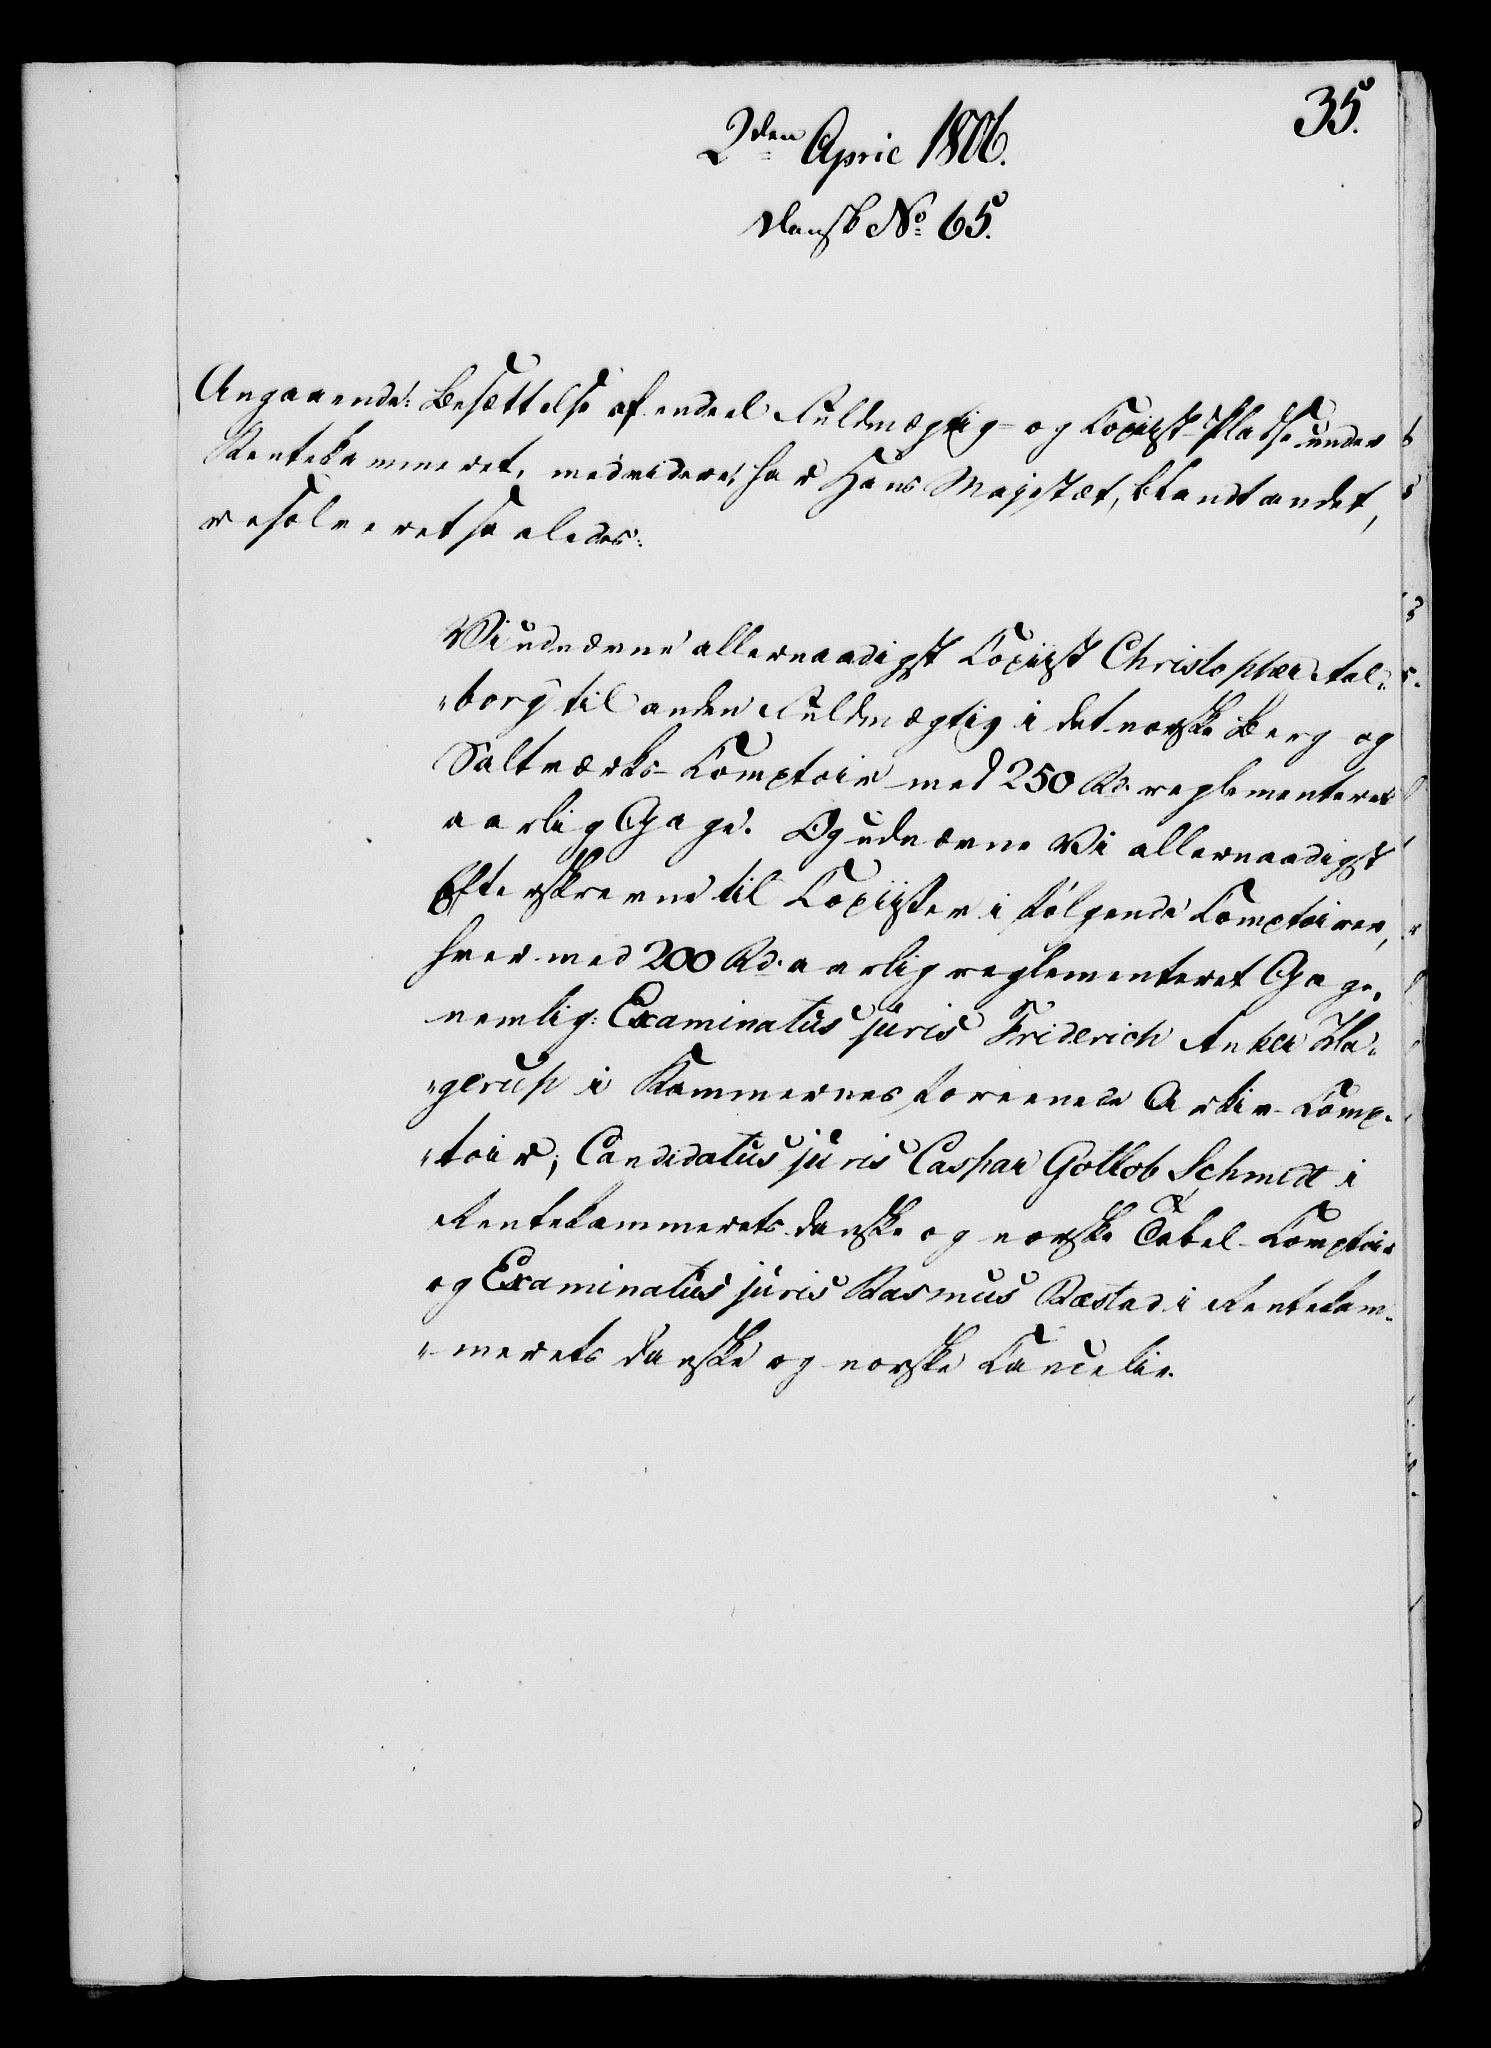 35.
2den April 1806.
Dansk No 65.
Angaaende: Besættelse af endeel Fuldmægtig- og Copiist-Pladse under
Rentekammeret, medvidere, har Hans Majestæt, blandt andet,
resolveret saaledes:
Vi udnævne allernaadigst Copiist Christopher Fal„
„borg til anden Fuldmægtig i det norske Berg- og
Saltværks-Comptoir med 250 Rd. reglementeret
aarlig Gage. Og udnævne Vi allernaadigst
Efterskrevne til Copiister i følgende Comptoirer,
hver med 200 Rd. aarlig reglementeret Gage,
nemlig: Examinatus juris Friderich Anker Ha„
„gerup i Kammernes forenede Arkiv-Comp„
„toir; Candidatus juris Caspar Gottlob Schmidt i
Rentekammerets danske og norske Tabel-Comptoir
og Examinatus juris Rasmus Ræstad i Rentekam„
„merets danske og norske Cancelie.